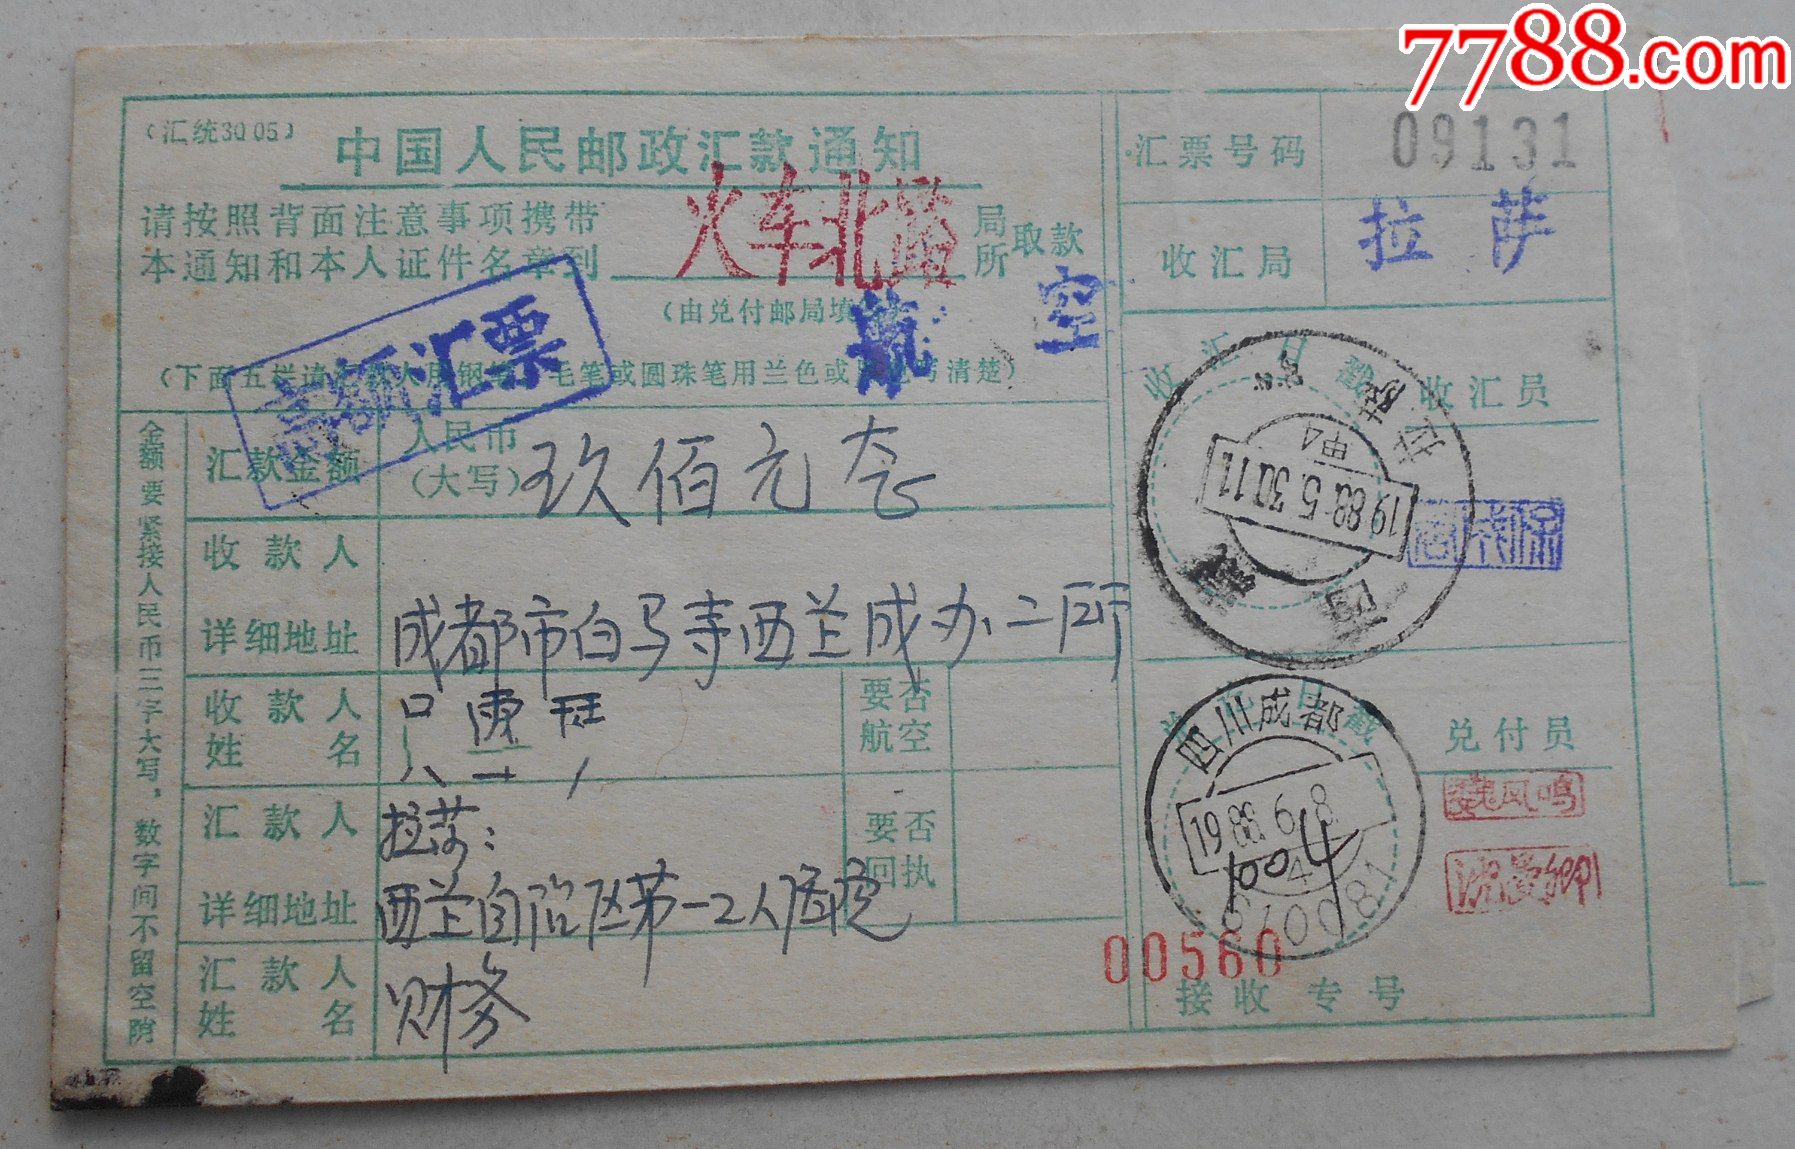 7788.com
(汇统3005)
中国人民邮政汇款通知
请按照背面注意事项携带
本通知和本人证件名章到 火车北路 局所 取款
(由兑付邮局填
航空
高额汇票
毛笔或圆珠笔用兰色或
清楚)
汇票号码 09131
收汇局 拉萨
收汇日戳 收汇员
1988.5.30.11
甲4
金额要紧接人民币三字大写，数字间不留空隙
汇款金额 人民币(大写) 玖佰元
收款人详细地址 成都市白马寺西芷成办二所
收款人姓名
要否航空
汇款人详细地址 拉萨：
西芷自治区第一人民医院
要否回执
汇款人姓名 财务
四川成都
1988.6.8
1004
610081
兑付员
魏凤鸣
00560
接收专号